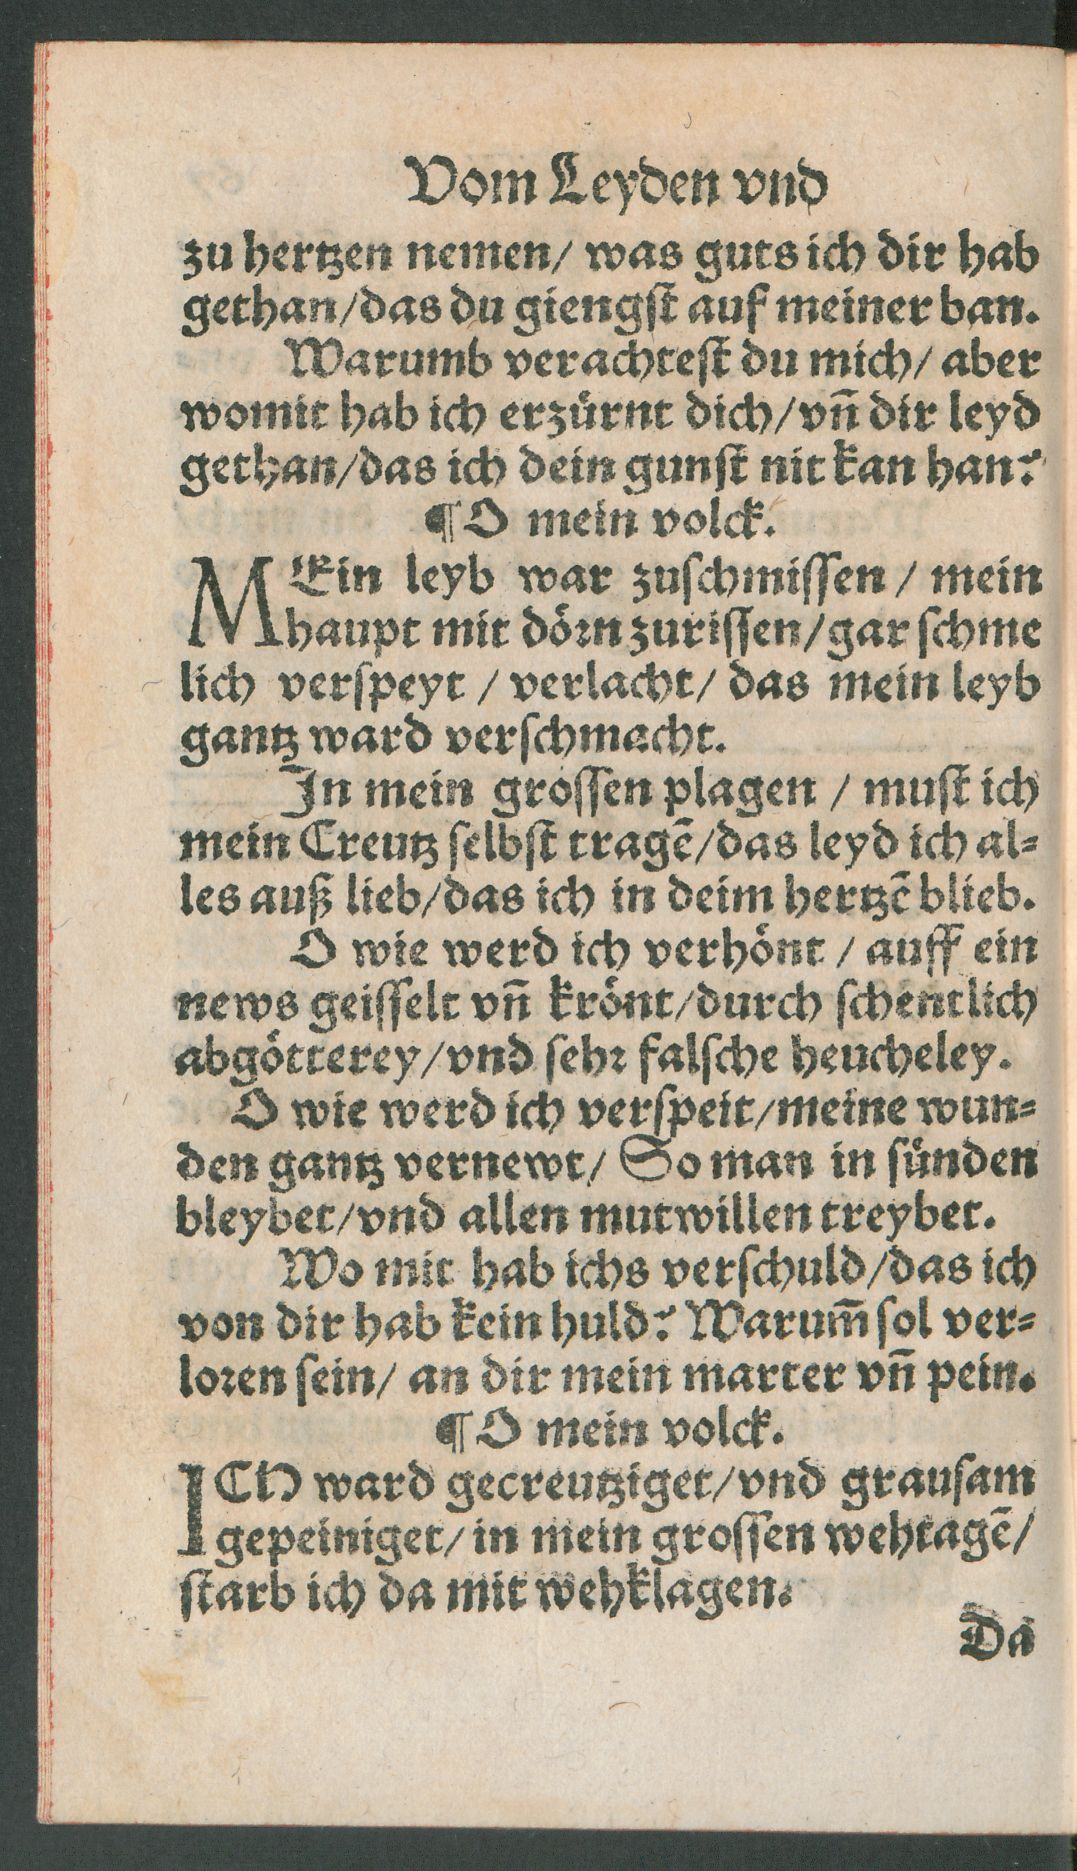 Vom Leyden vnd
zu hertzen nemen/ was guts ich dir hab
gethan/das du giengst auf meiner ban.
Warumb verachtest du mich/ aber
womit hab ich erzürnt dich/vñ dir leyd
gethan/das ich dein gunst nit kan han?
¶O mein volck.
MEin leyb war zuschmissen / mein
haupt mit dörn zurissen/gar schme
lich verspeyt / verlacht/ das mein leyb
gantz ward verschmacht.
In mein grossen plagen / must ich
mein Creutz selbst tragẽ/das leyd ich al-
les auß lieb/das ich in deim hertzẽ blieb.
O wie werd ich verhönt / auff ein
news geisselt vñ krönt/durch schentlich
abgötterey/vnd sehr falsche heucheley.
O wie werd ich verspeit/meine wun-
den gantz vernewt/ So man in sünden
bleybet/vnd allen mutwillen treybet.
Wo mit hab ichs verschuld/das ich
von dir hab kein huld? Warum̃ sol ver-
loren sein/ an dir mein marter vñ pein.
¶O mein volck.
ICH ward gecreutziget/vnd grausam
gepeiniget/in mein grossen wehtagẽ/
starb ich da mit wehklagen.
Da